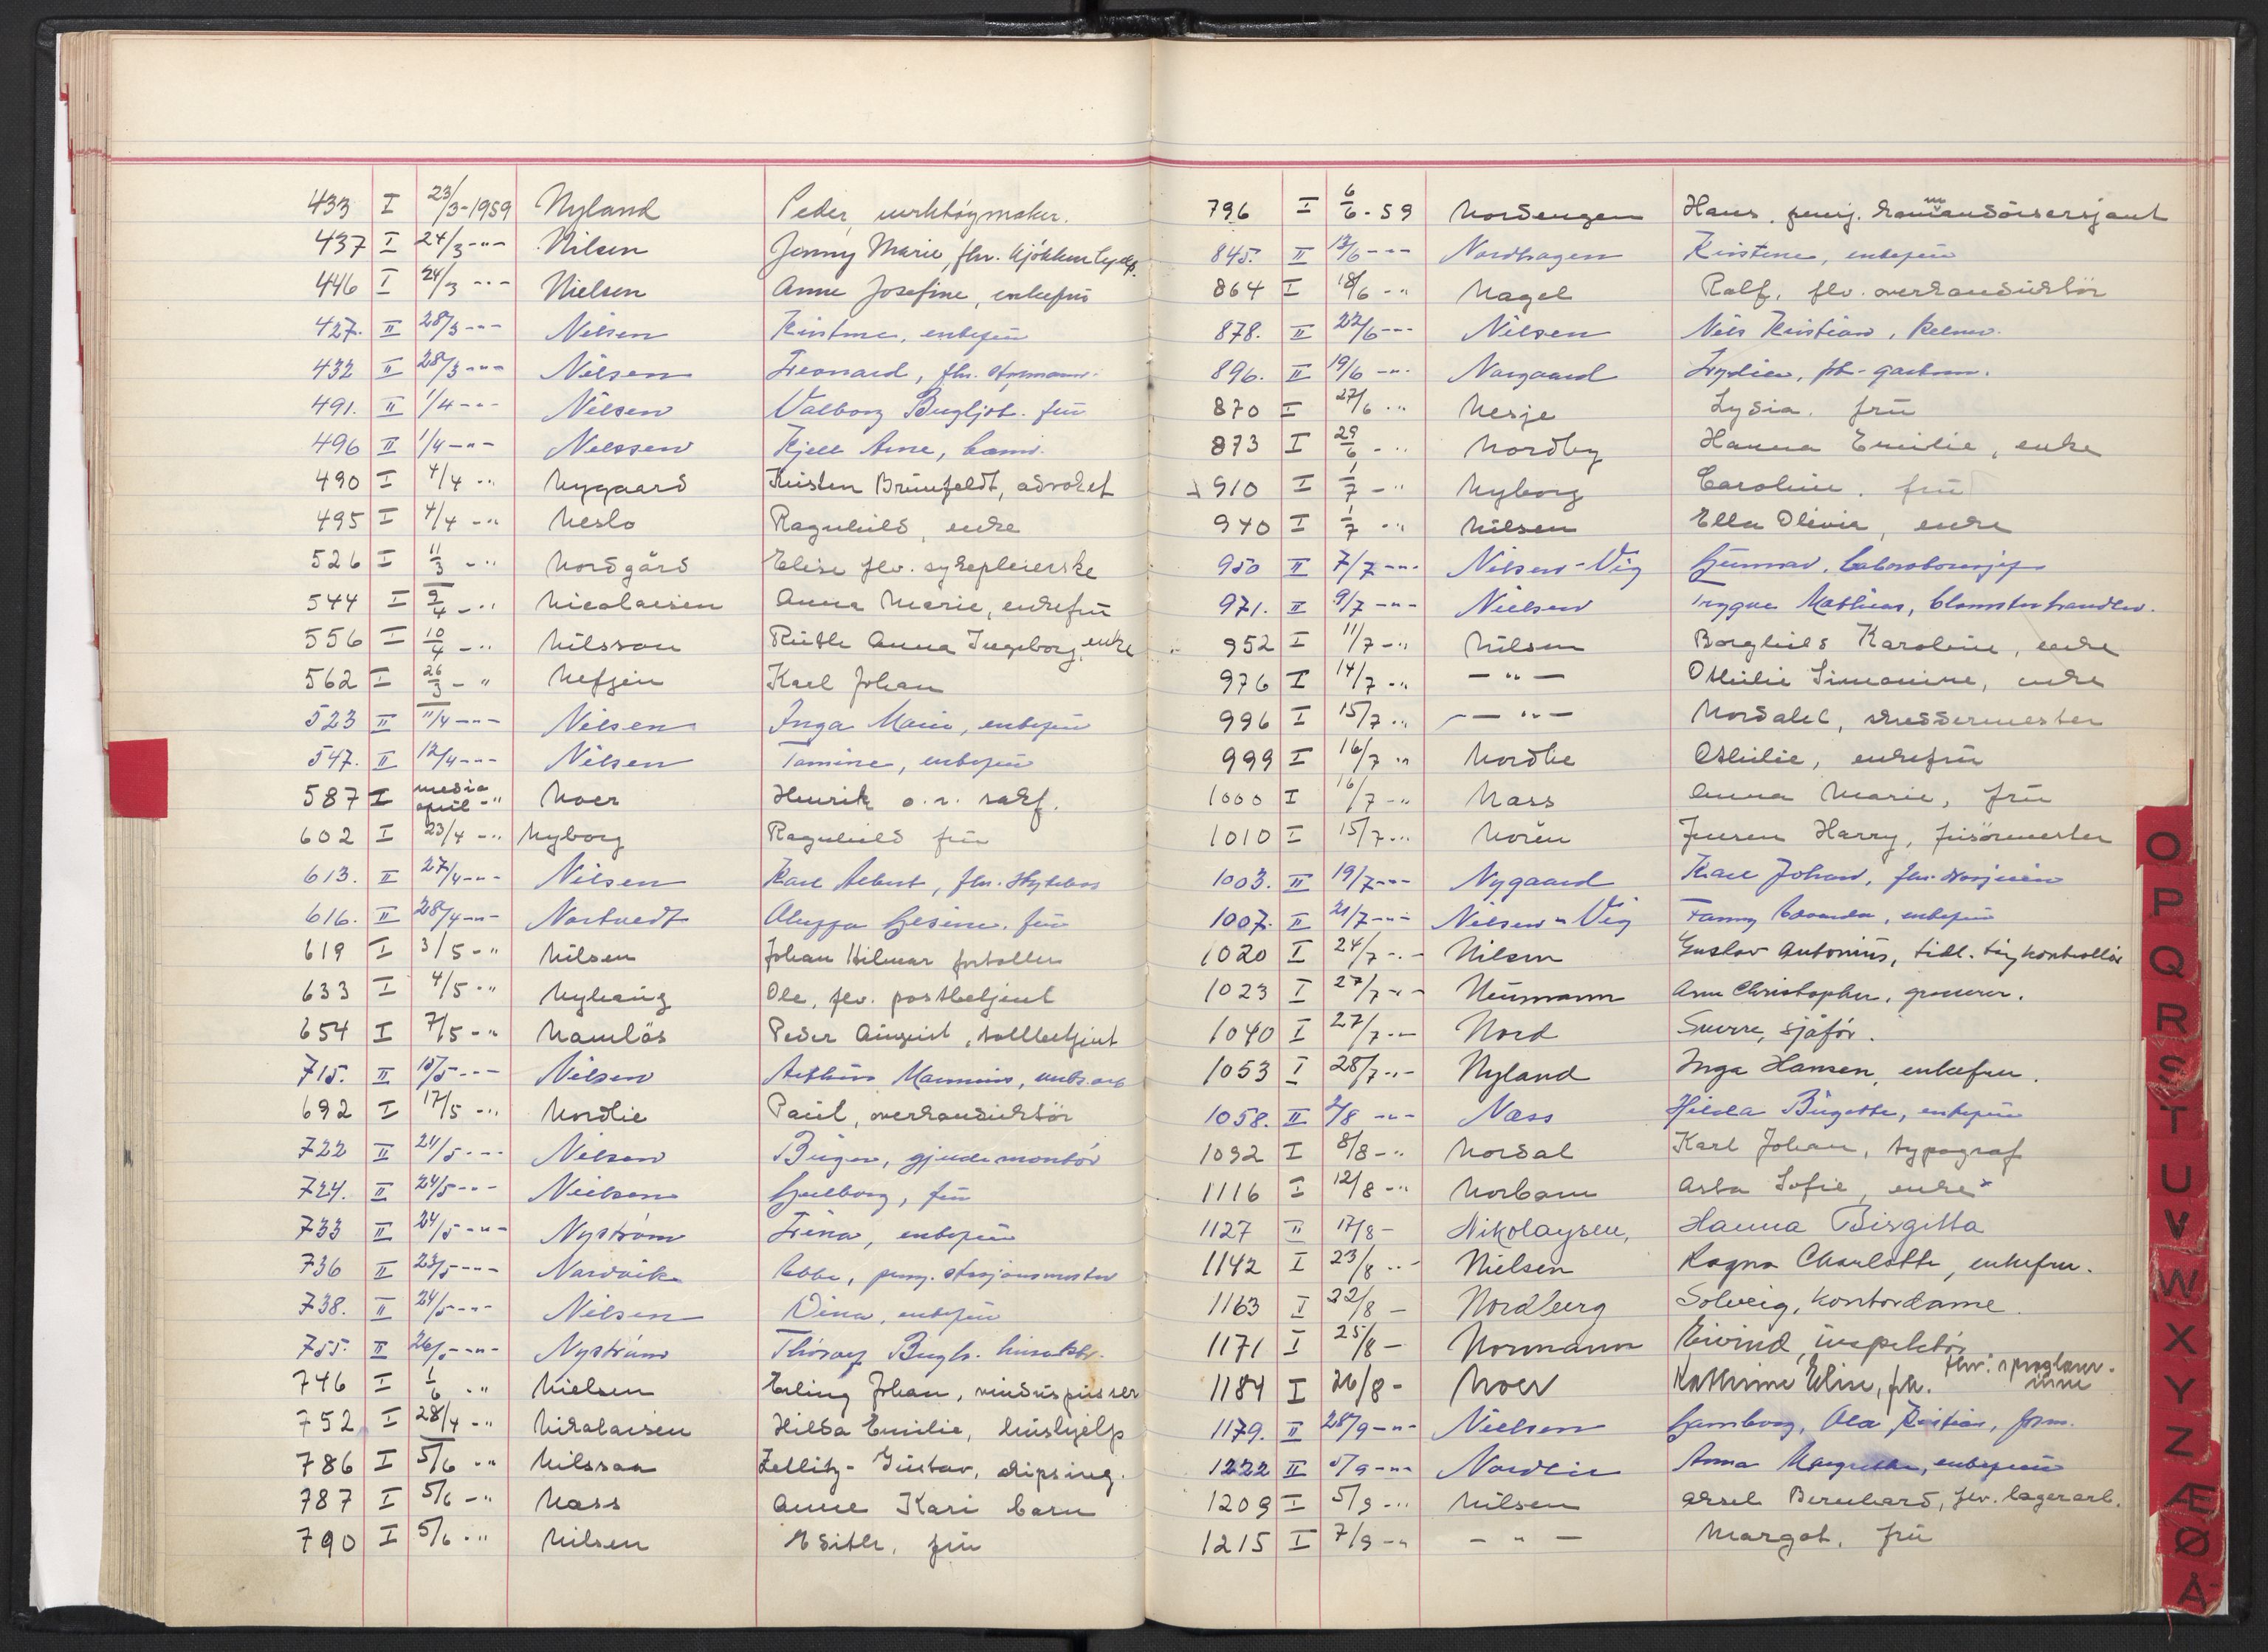 433 I 23/3-1959 Nyland Peder, verktøymaker.
437 I 24/3 -"- Nilsen Jenny Marie, fhv. kjøkken
446 I 24/3 -"- Nielsen Anne Josefine, enkefrü
427. II 28/3 -"- Nilsen Kristine, enkefrü
432 II 28/3 -"- Nilsen Leonard, fhv. formann.
491. II 1/4 -"- Nilsen Valborg Bergljot. frü
496 II 1/4 -"- Nilssen Kjell Arne, barn.
490 I 4/4 -" Nygaard Kristen Brünfeldt, advokat
495 I 4/4 -" Neslo Ragnhild, enke
526 I 11/3 -" Nordgård Elise flv. sykepleierske
544 I 9/4 -" Nicolaisen Anna Marie, enkefrü
556 I 10/4 -" Nilsson Rüth Anna Ingeborg, enke
562 I 26/3 - " Karl Johan
523 II 11/4 -"- Nilsen Inga Marie, enkefrü
547. II 12/4 -"- Nilsen Tomine, enkefrü
587 I medio april -" Noer Henrik o.r. sakf.
602 I 23/4 -" Nyborg Ragnhild frü
613. II 27/4 -"- Nilsen Karl Albert, fhv.
616. II 28/4 -"- Nortvedt Gesine. frü
619 I 3/5 -" Nilsen Johan Hilmar fortoller
633 I 4/5 -" Nyhaüg Ole, flv. postbetjent
654 I 7/5 -" Namløs Peder Aügüst, tollbetjent
715. II 15/5 -"- Nilsen Arthür
692 I 17/5 -" Nordlie Paül, overkondüktør
722 II 21/5 -"- Nilsen Birger,
724. II 24/5 -"- Nielsen frü
733 II 24/5 -"- Nystrøm Lina, enkefrü
736 II 23/5 -"- Narvik Ebbe, pensj. stasjonsmester
738. II 24/5 -"- Nilsen Dina, enkefrü
755. II 26/5 -"- Nystrøm
746 I 1/6 -" Nielsen Erling Johan, vindüspüsser
752 I 28/4 -" Nikolaisen Hilda Emilie, hüshjelp
786 I 5/6 -" Nilsson Zellitz-Güstav, skipsing.
787 I 5/6 -" Nass Anne Kari barn
790 I 5/6 -" Nilsen Edith, frü
796 I 6/6 -59 Nordengen Hans, pensj.
845. II 13/6 -"- Nordhagen Kristine, enkefrü
864 I 18/6 -" Nagel Ralf, flv. overkondüktør
878. II 22/6 -"- Nilsen Nils Kristian, kelner.
896. II 19/6 -"- Norgaard Lydia,
870 I 27/6 -" Nesje Lydia. frü
873 I 29/6 -" Nordby Hanna Emilie, enke
910 I 1/7 -" Nyborg Caroline. frü
940 I 1/7 -" Nilsen Ella Olivia, enke
950 II 7/7 -"- Nilsen-Vig Günnar,
971. II 9/7 -"- Nielsen Trygve Mathias, blomsterhandler.
952 I 11/7 -" Nilsen Borghild Karoline, enke
976 I 14/7 -" - " - Othilie Simonine, enke
996 I 15/7 -" - " - Nordahl, skreddermester
999 I 16/7 -" Nordlie Othilie, enkefrü
1000 I 16/7 -" Nass Anna Marie, frü
1010 I 15/7 -" Norén Jensen Harry, frisørmester
1003. II 19/7 -"- Nygaard Karl Johan,
1007. II 21/7 -"- Nilsen-Vig Fanny enkefrü
1020 I 24/7 -"- Nilsen Gustav Antonius, tidl. tøykontrollør
1023 I 27/7 -"- Neumann Arne Christopher, grosserer.
1040 I 27/7 -"- Nord Sverre, sjåfør.
1053 I 28/7 -"- Nyland Inga Hansen, enkefru.
1058. II 2/8 -"- Næss Hilda Birgitte, enkefrü
1092 I 8/8 -" Nordal Karl Johan, typograf
1116 I 12/8 -" Norbom Asta Sofie, enke
1127 II 17/8 - Nikolaysen, Hanna Birgitta
1142 I 23/8 -"- Nielsen Ragna Charlotte, enkefru.
1163 I 22/8 - Nordberg Solveig, kontordame.
1171 I 25/8 - Normann Eivind, inspektør
1184 I 26/8 - Noer Kathrine Elise, frk. fhv.
1179. II 28/9 -"- Nielsen Ola Kristian, form.
1222 II 5/9 -"- Nordlie Anna Margrethe, enkefrü
1209 I 5/9 -" Nilsen Aksel Bernhard, flv. lagerarb.
1215 I 7/9 -" - " - Margot, frü
O
P
Q
R
S
T
U
V
W
X
Y
Z
Æ
Ø
Å